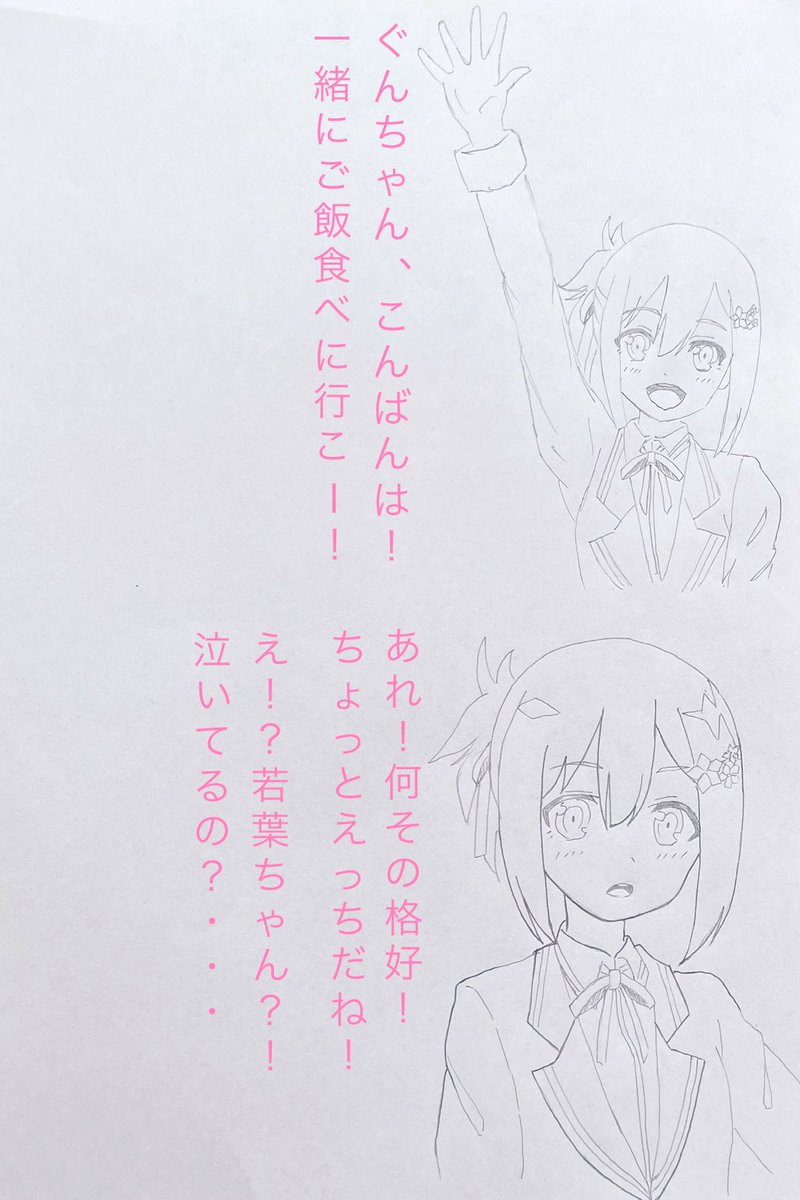 ぐんちゃん、こんばんは！
一緒にご飯食べに行こー！
あれ！何その格好！
ちょっとえっちだね！
え！？若葉ちゃん？！
泣いてるの？・・・